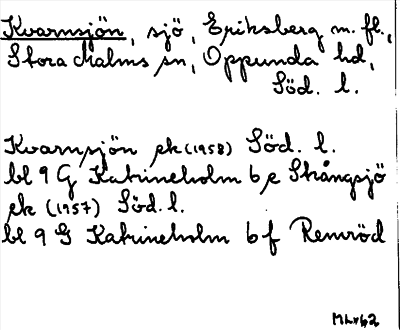 Kvarnsjön, sjö, Eriksberg m. fl.,
Stora Malms sn, Oppunda hd,
Söd. l.
Kvarnsjön ek (1958) Söd. l.
bl 9 G Katrineholm 6 e Strångsjö
ek (1957) Söd. l.
bl 9 G Katrineholm 6 f Remröd